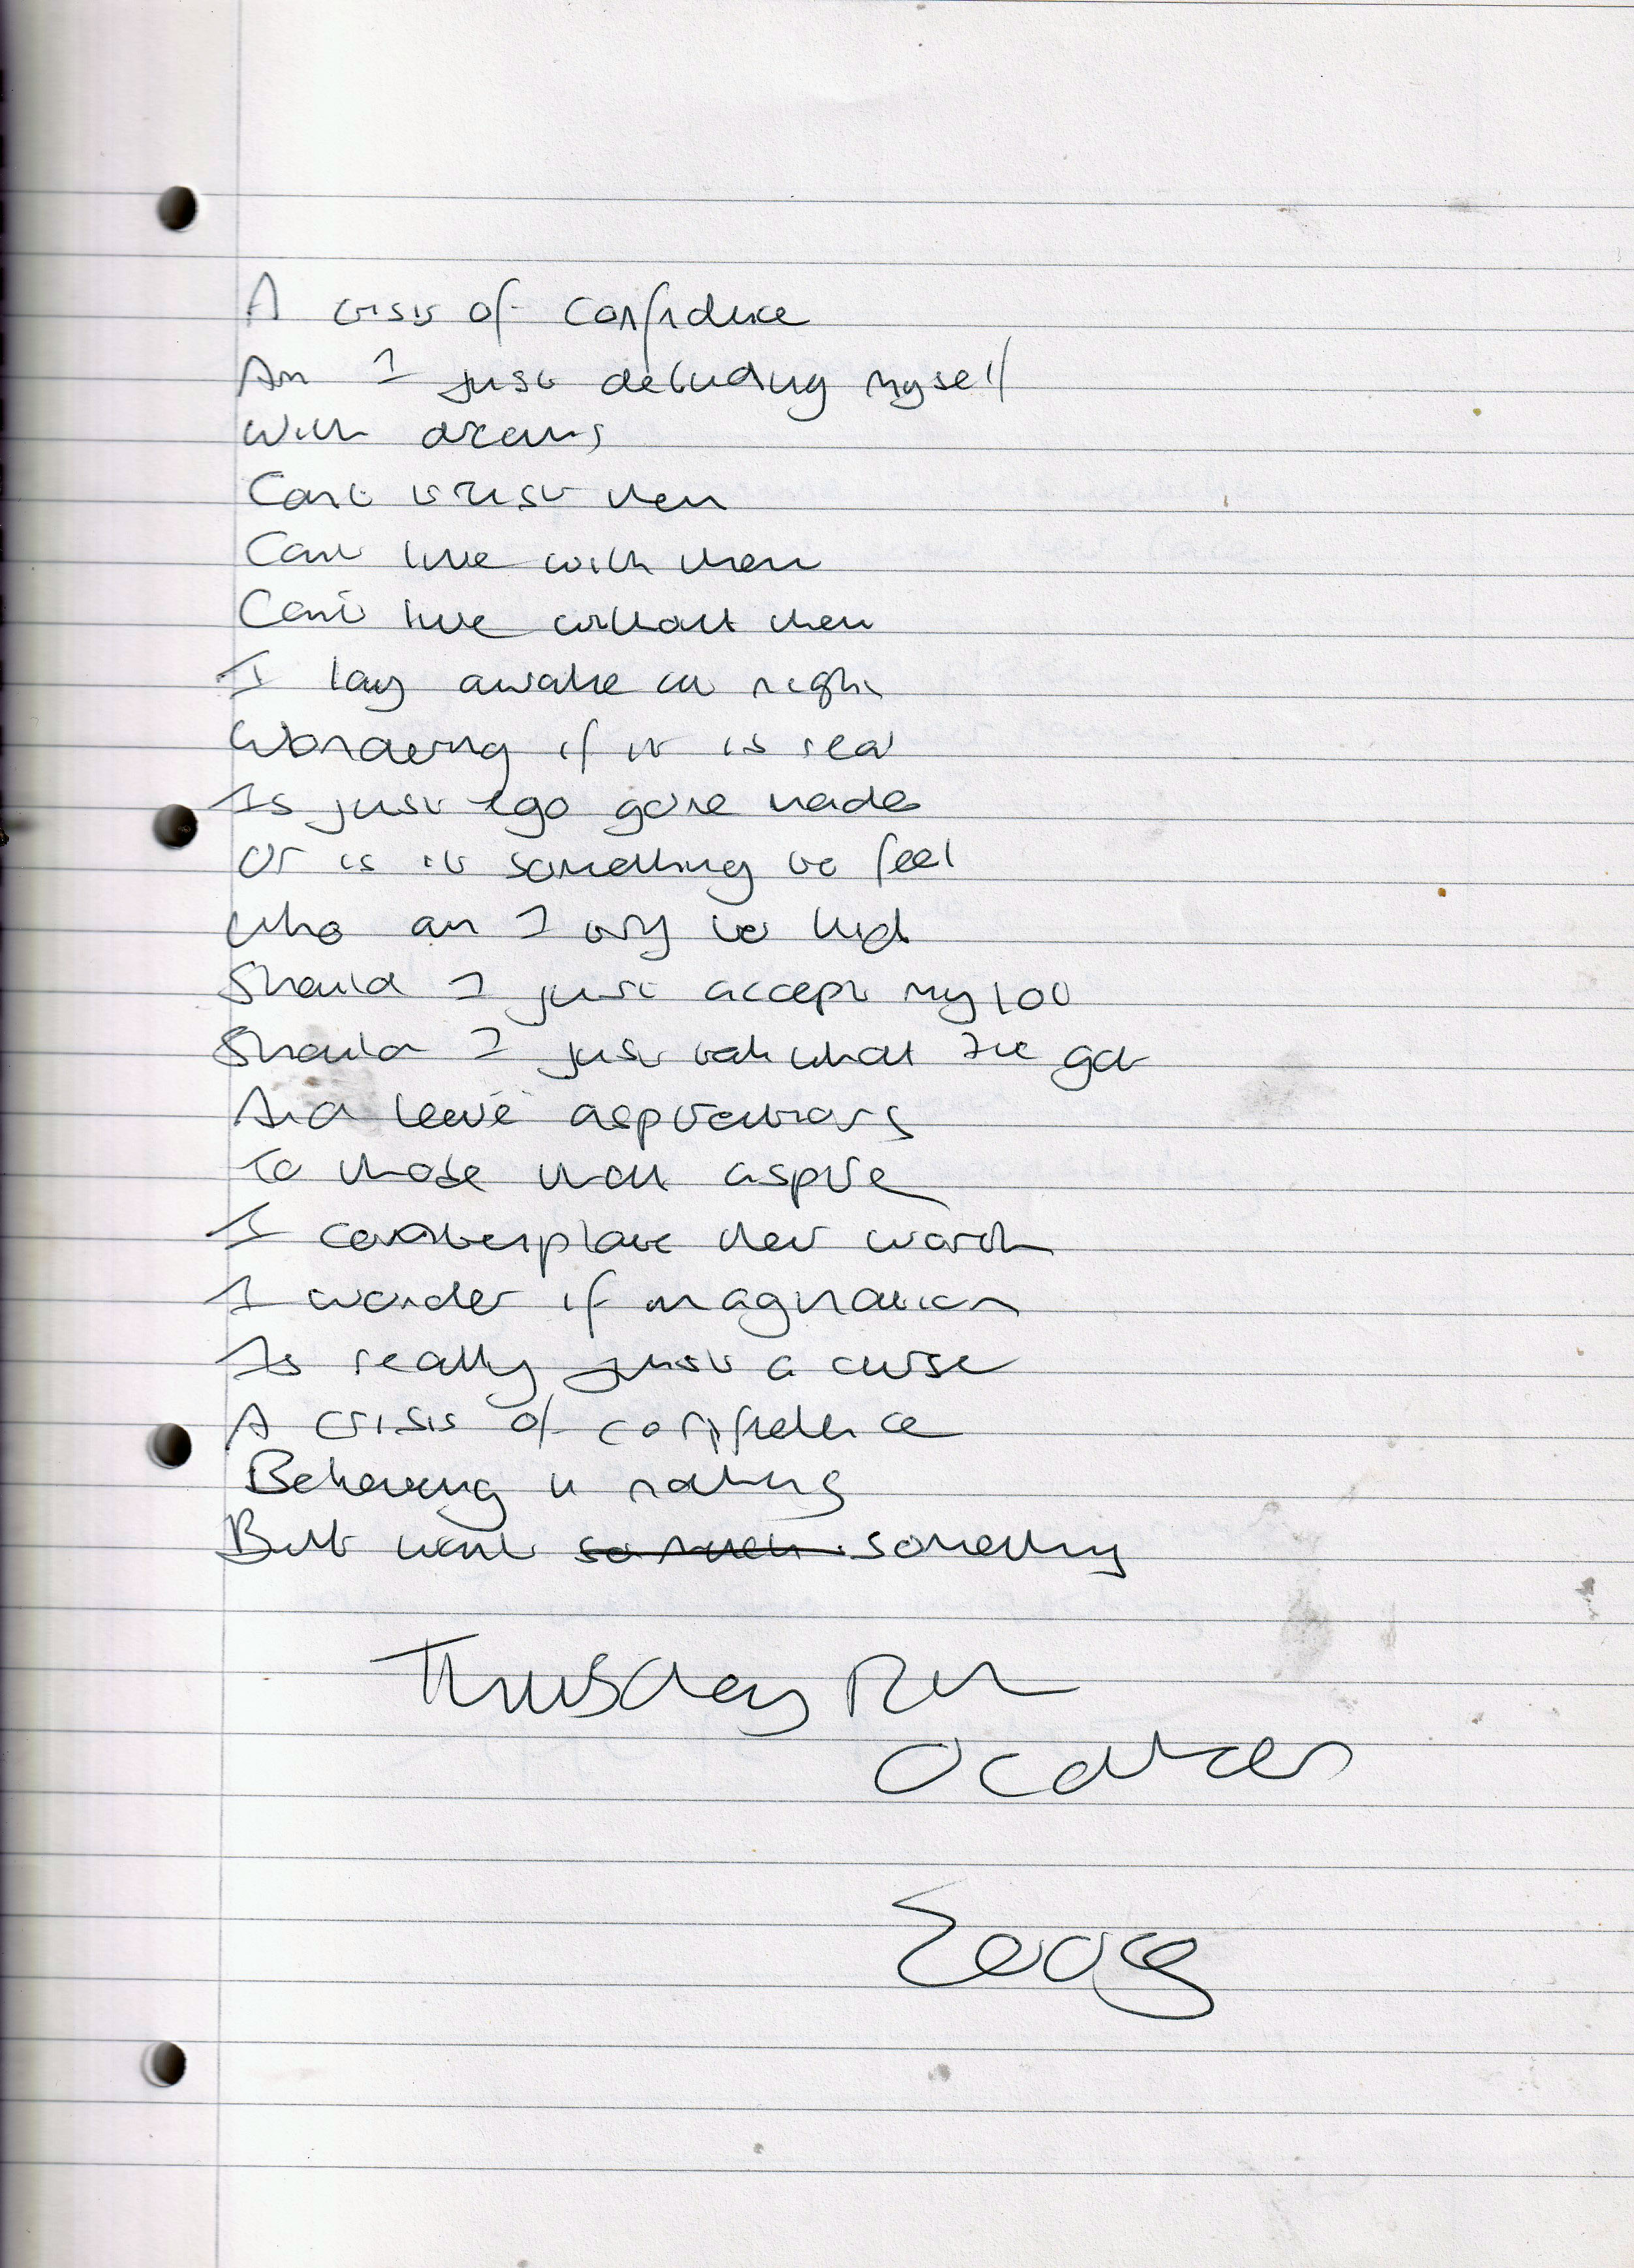 A crisis of confidence
Am I just deluding myself
With dreams
Can't trust them
Can't live with them
Can't live without them
I lay awake at night
Wondering if it is real
Is just ego gone
Or is it something to feel
Who am I try to
Should I just accept my lot
Should I just take what I've got
And leave aspirations
To those that aspire
I contemplate their worth
I wonder if imagination
Is really just a curse
A crisis of confidence
Believing in nothing
But want so much something
Thursday
October